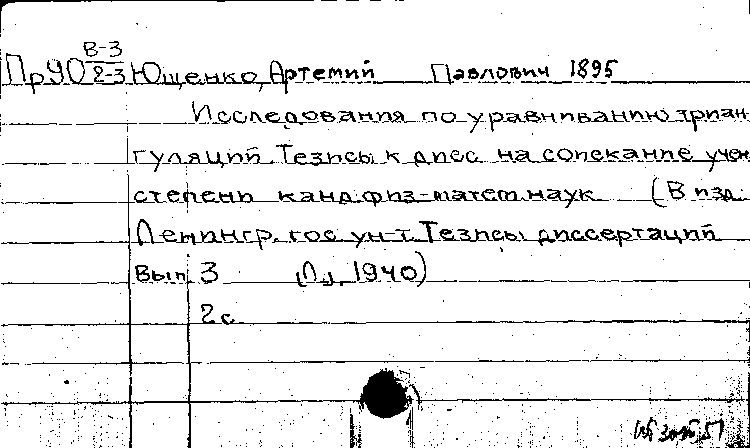 В-3
Пр90 2-3 Ющенко, Артемий Павлович 1895
Исследования по уравниванию триан
гуляций. Тезисы к дисс. на соискание учен
степени канд. физ-матем. наук (В изд.
Ленингр. гос. ун-т. Тезисы диссертаций
Вып. 3 (Л., 1940)
2 с.